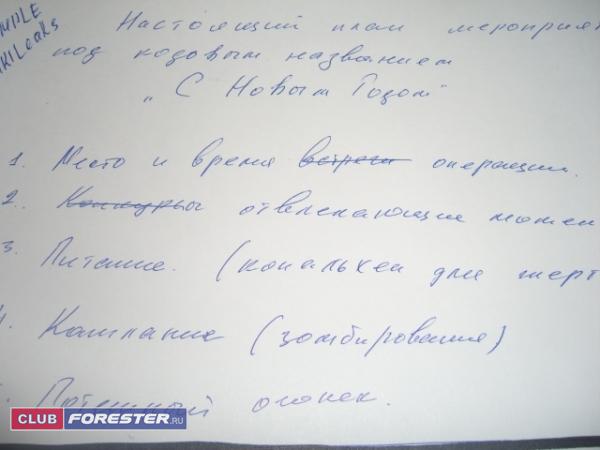 Настоящий план мероприят
под кодовым названием
„С Новым Годом"
1. Место и время встречи операции.
2. Конкурсы отвлекающие момен
3. Питание. (копальхен для жерт
4. Кампание (зомбирование)
огонек.
CLUB FORESTER.RU